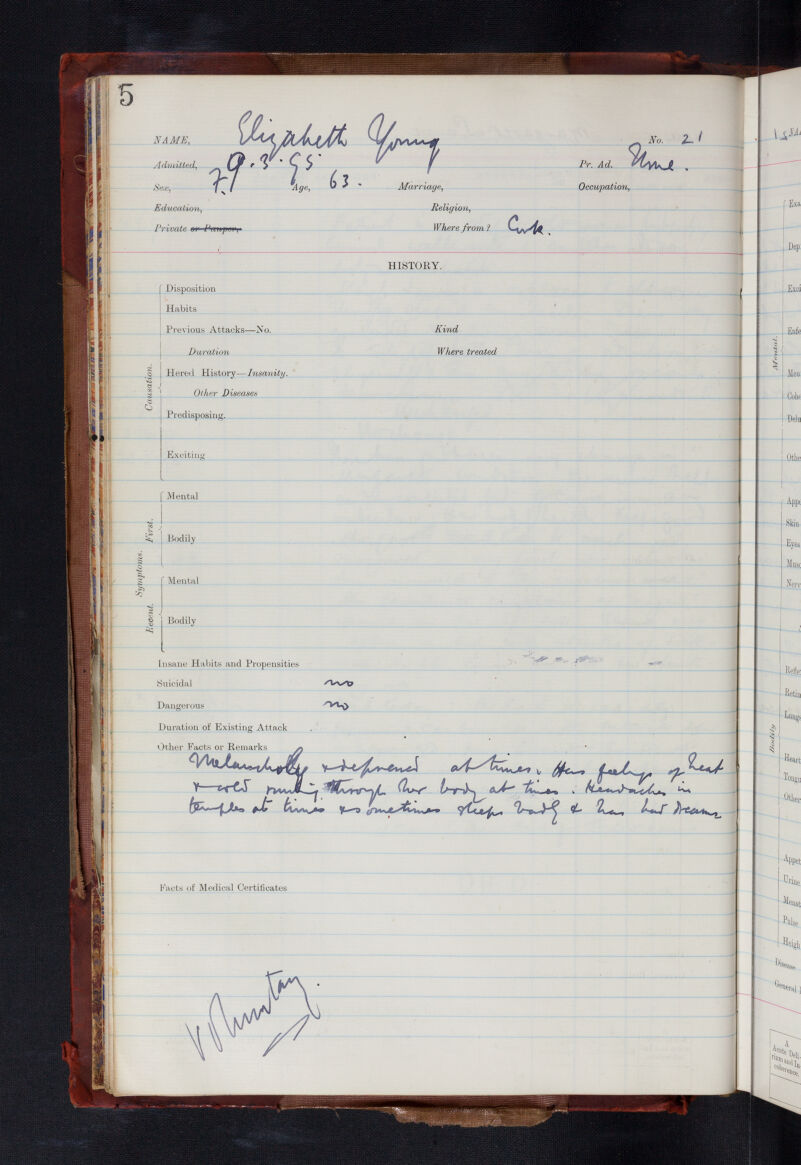 5
NAME, Elizabeth Young No. 21
Admitted, 9.3.95 Pr. Ad.
Sex, F. Age, 63. Marriage, Occupation,
Education, Religion,
Private or Pauper, Where from? Cork.
HISTORY.
Causation.
Disposition
Habits
Previous Attacks—No. Kind
Duration Where treated
Hered History—Insanity.
Other Diseases
Predisposing.
Exciting
Symptoms.
First.
Mental
Bodily
Recent.
Mental
Bodily
Insane Habits and Propensities
Suicidal no
Dangerous no
Duration of Existing Attack
Other Facts or Remarks
Melancholy & depressed at times. Has feelings of heat
& cold running through her body at times. Headaches in
temples at times & sometimes sleeps badly & has bad dreams
Facts of Medical Certificates
Voluntary.
Mental.
Bodily
Skin
Eyes
Heart
Urine
Pulse
Disease
General
A